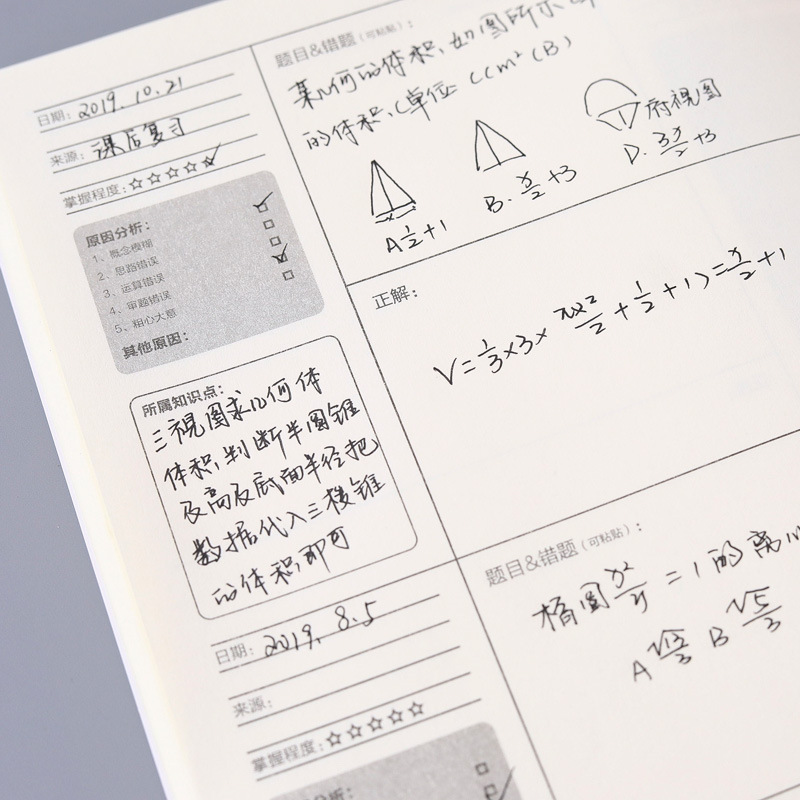 日期: 2019.10.21
来源: 课后复习
掌握程度:☆☆☆☆☆
原因分析:
1、概念模糊
2、思路错误
3、运算错误
4、审题错误
5、粗心大意
其他原因:
所属知识点:
三视图求几何体
体积,判断半圆锥
及高及底面半径把
数据代入三棱锥
的体积即可
题目&错题(可粘贴):
某几何的体积,如图所示
的体积,(单位 (cm² (B)
府视图
A 1/2+1
B. x/2+3
D. 3x/2+3
正解:
V=1/3×3×
=x/2+1
日期: 2019. 8.5
来源:
掌握程度:☆☆☆☆☆
分析:
题目&错题(可粘贴):
椭圆
=1的离心
A √13/3 B √5/3